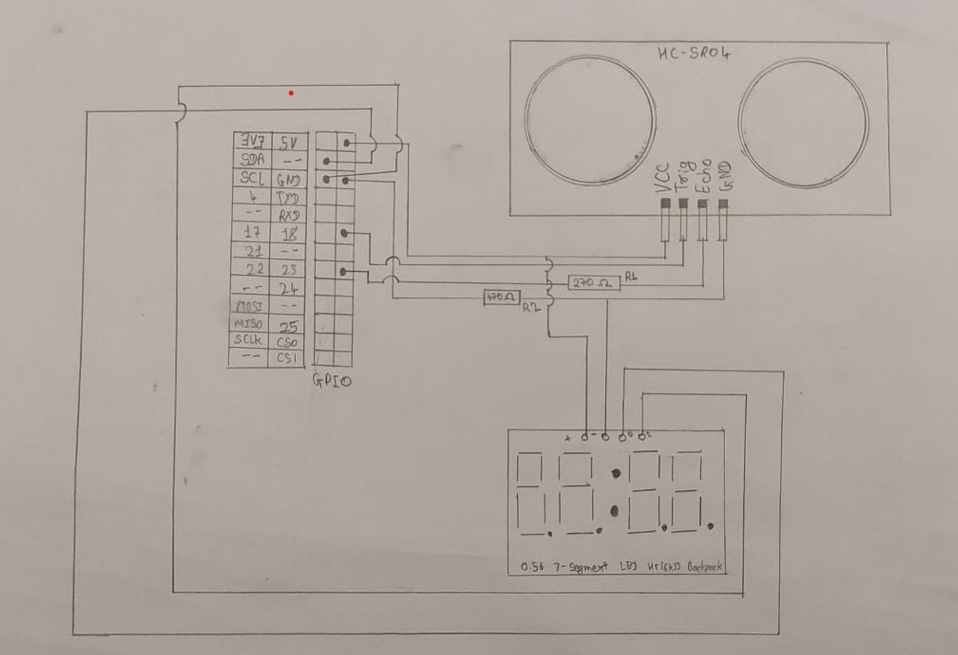 HC-SR04
VCC Trig Echo GND
3V3 5V
SDA --
SCL GND
4 TXD
-- RXD
17 18
21 --
22 23
-- 24
MOSI --
MISO 25
SCLK CS0
-- CS1
GPIO
270 Ω R1
470Ω R2
+ - D C
0.56 7-Segment LED HT16K33 Backpack